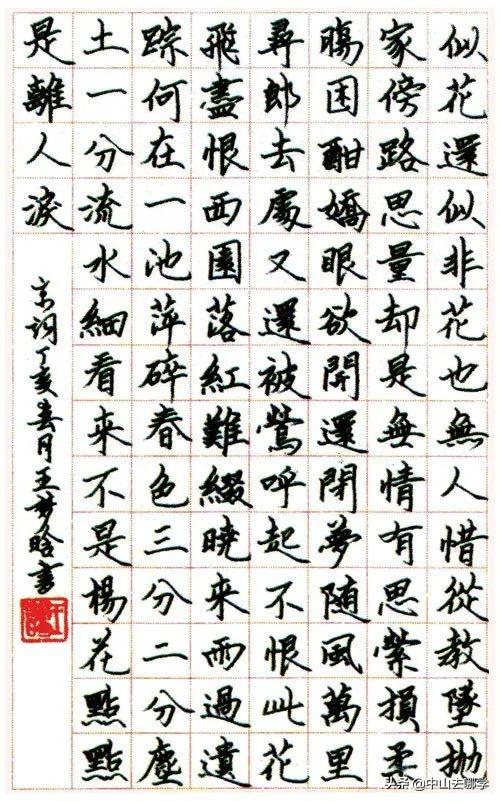 似花還似非花也無人惜從教墜抛
家傍路思量却是無情有思縈損柔
腸困酣嬌眼欲開還閉夢随風萬里
尋郎去處又還被鶯呼起不恨此花
飛盡恨西園落紅難綴曉来雨過遺
踪何在一池萍碎春色三分二分塵
土一分流水細看来不是楊花點點
是離人淚
宋词丁亥春月王梦晗書
头条 @中山去哪学